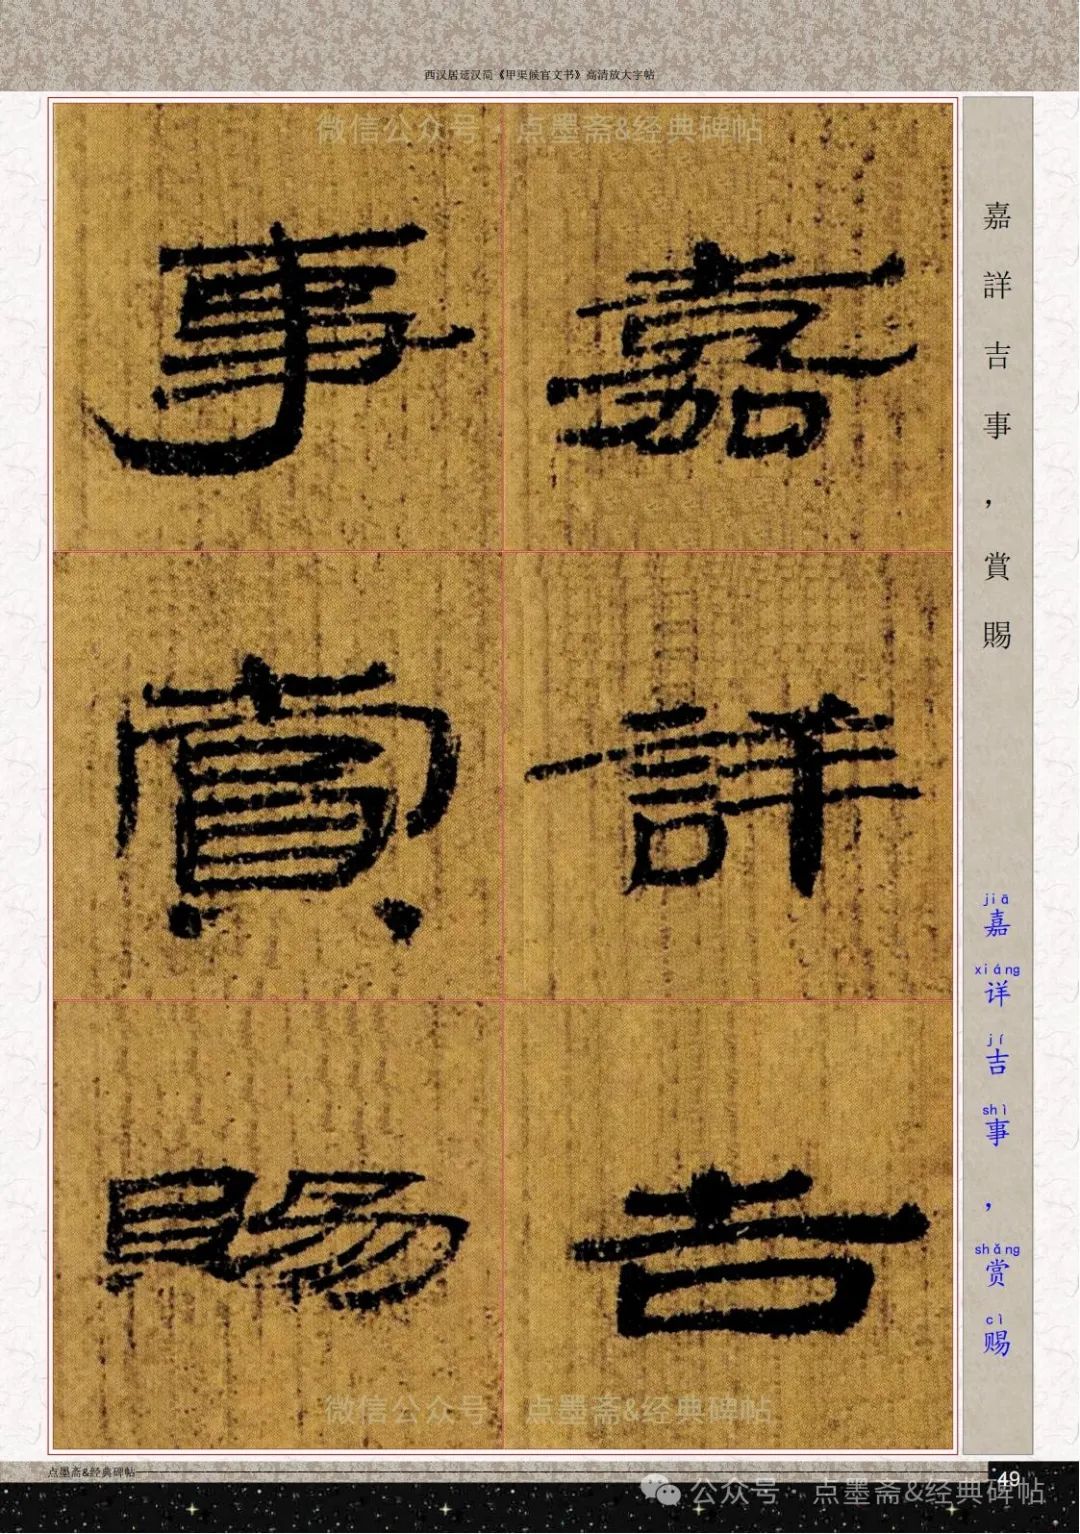 西汉居延汉简《甲渠候官文书》高清放大字帖
微信公众号·点墨斋&经典碑帖
嘉詳吉
事賞賜
嘉詳吉事，賞賜
jiā xiáng jí shì shǎng cì
嘉详吉事，赏赐
微信公众号·点墨斋&经典碑帖
点墨斋&经典碑帖
49
公众号·点墨斋&经典碑帖